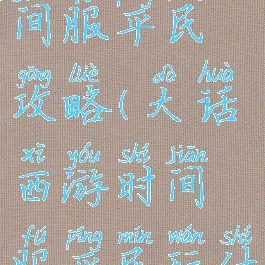 间服平民
gōng lüè dà huà
攻略(大话
xī yóu shí jiān
西游时间
fú píng mín wán shí